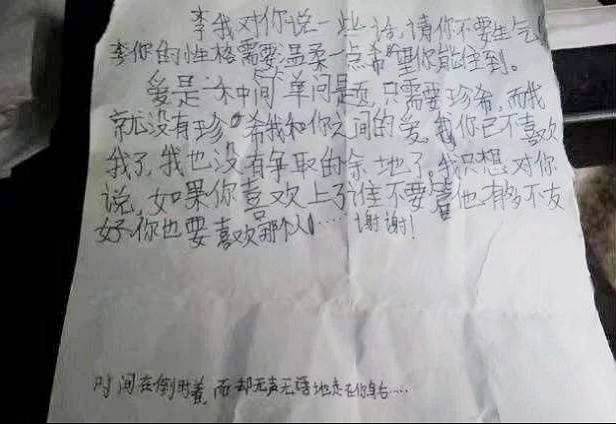 李我对你说一些话,请你不要生气
李你的性格需要温柔一点希望你能住到。
爱是一木中间单问是,只需要珍希,而我
就没有珍希我和你之间的爱,我你已不喜欢
我了,我也没有争取的余地了,我只想对你
说,如果你喜欢上了谁不要管他有多不友
好,你也要喜欢那个人……谢谢!
时间在倒时着,而却无声无语地走在你身右……